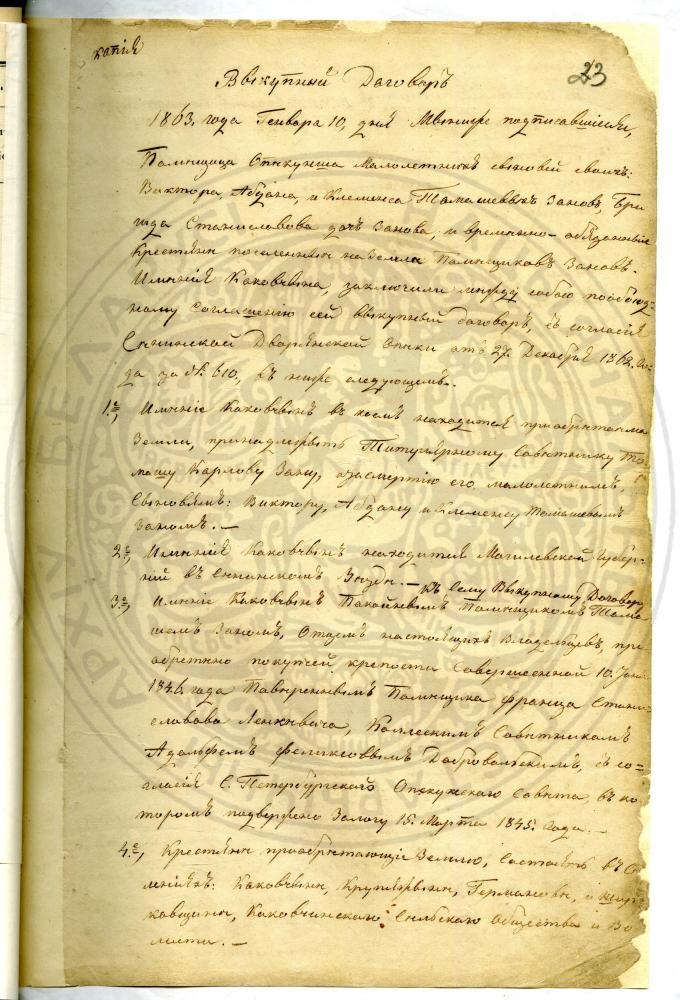 копія
23
Выкупный Договоръ
1863. года Генваря 10, дня Мы нижеподписавшіеся,
Помѣщица Опекунша Малолетнихъ сыновей своихъ:
Виктора, Абдана, и Клеменса Томашевыхъ Зановъ, Бри
гида Станиславова дочь Занова, и временно-обязанные
Крестьяне поселенные на Земле Помѣщиковъ Зановъ.
Имѣнія Каковчина, заключили между собою по обоюд-
ному Соглашенію сей выкупный договоръ, съ согласія
Сѣннинской Дворянской Опеки отъ 27. Декабря 1862. Го-
да за №. 610, въ ниже следующемъ.
1.е, Имѣніе Каковчинъ въ коемъ находится приобретаемая
Земли, принадлежитъ Титулярному Советнику То-
машу Карлову Зану, а за смертію его, малолетнимъ,
Сыновьямъ: Виктору, Абдану и Клеменсу Томашевымъ
Заномъ. —
2.е, Имѣніе Каковчинъ находится Могилевской Губер-
ніи въ Сѣннинскомъ Уѣзде. — Къ сему Выкупному Договору
3.е, Имѣніе Каковчинъ Помѣщикомъ Тома-
шемъ Заномъ, Отцемъ настоящихъ Владельцевъ, при
обретено покупчей крепости Совершенной 10.
1846. года Повереннымъ Помѣщика Франца Стани-
славова Ленкевича, Коллескимъ Советникомъ
Адольфомъ Феликсовымъ Добровольскимъ, съ со-
гласія С. Петербургского Опекунскаго Совета, въ ко-
торомъ подвержено Залогу 15. Марта 1845. Года. —
4.е, Крестьяне приобретающіе Землю, Состоятъ въ Се-
леніяхъ: Каковчине, Германове, и
ковщине, Каковчинскаго Сельскаго Общества и Во
лости. —